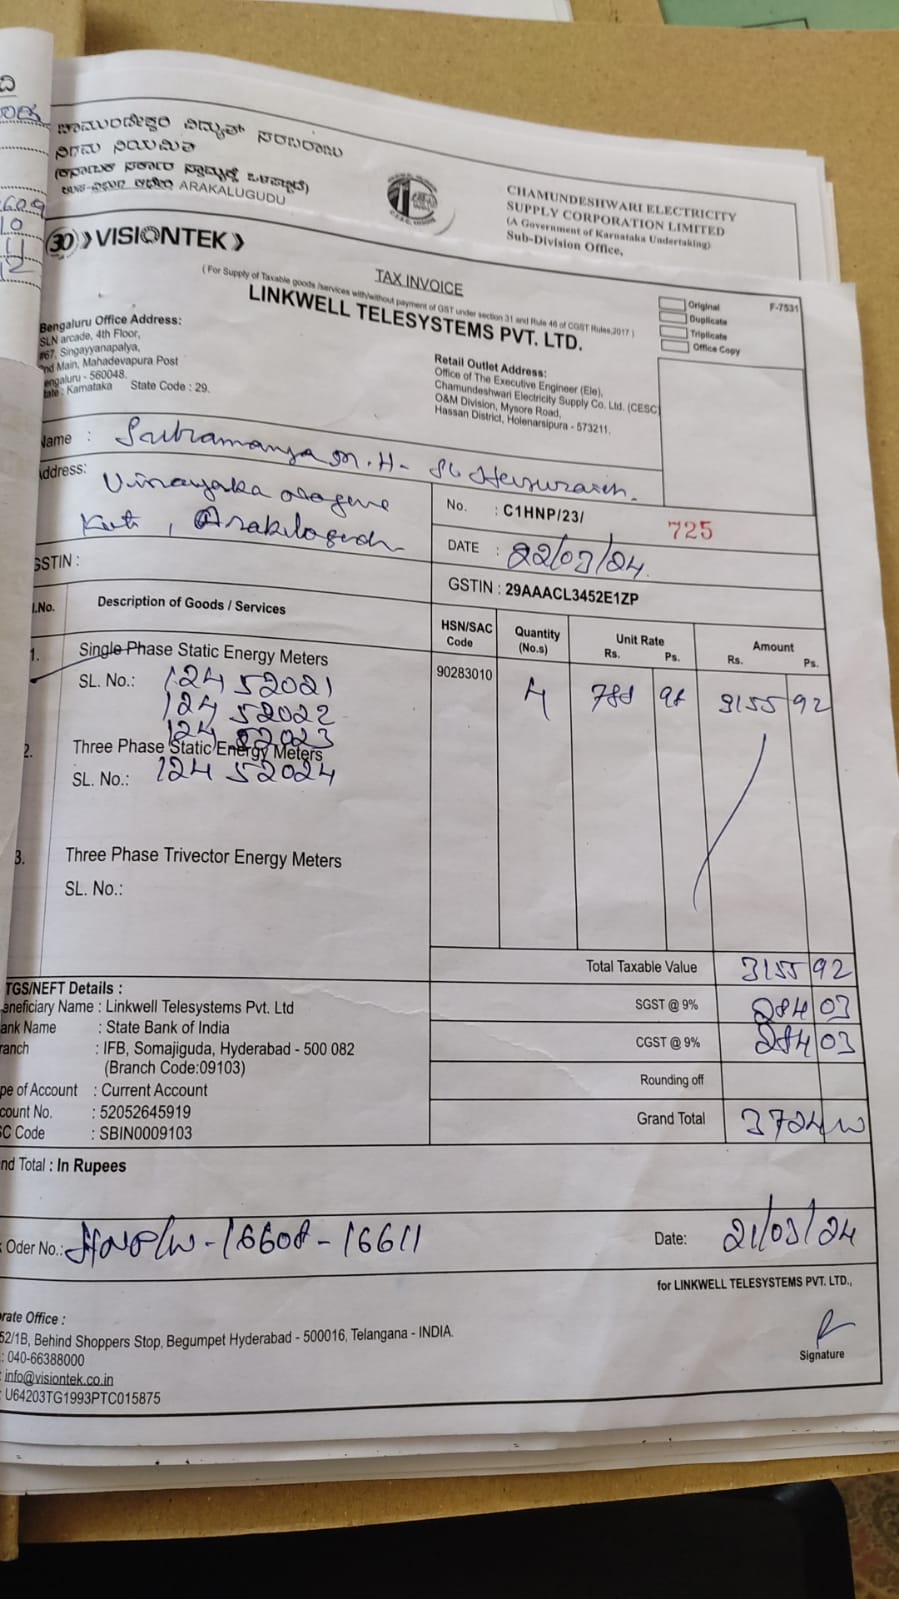 ಚಾಮುಂಡೇಶ್ವರಿ ವಿದ್ಯುತ್ ಸರಬರಾಜು
ನಿಗಮ ನಿಯಮಿತ
(ಕರ್ನಾಟಕ ಸರ್ಕಾರ ಸ್ವಾಮ್ಯಕ್ಕೆ ಒಳಪಟ್ಟಿದೆ)
ARAKALUGUDU
CHAMUNDESHWARI ELECTRICITY
SUPPLY CORPORATION LIMITED
(A Government of Karnataka Undertaking)
Sub-Division Office,
30 VISIONTEK
TAX INVOICE
(For Supply of Taxable goods /services with/without payment of GST under section 31 and Rule 46 of CGST Rules,2017)
LINKWELL TELESYSTEMS PVT. LTD.
Original
Duplicate
Triplicate
Office Copy
F-7531
Bengaluru Office Address:
SLN arcade, 4th Floor,
#67, Singayyanapalya,
nd Main, Mahadevapura Post
engaluru - 560048.
tate : Karnataka State Code : 29.
Retail Outlet Address:
Office of The Executive Engineer (Ele),
Chamundeshwari Electricity Supply Co. Ltd. (CESC)
O&M Division, Mysore Road,
Hassan District, Holenarsipura - 573211.
Name :
M.H-
Address: Vinayaka
GSTIN :
No. : C1HNP/23/ 725
DATE : 22/03/24
GSTIN : 29AAACL3452E1ZP
l.No. Description of Goods / Services HSN/SAC Code Quantity (No.s) Unit Rate Rs. Ps. Amount Rs. Ps.
1. Single Phase Static Energy Meters 90283010 4 788 98 3155 92
SL. No.: 12452021
12452022
12452023
2. Three Phase Static Energy Meters
SL. No.: 12452024
3. Three Phase Trivector Energy Meters
SL. No.:
Total Taxable Value 3155 92
SGST @ 9% 284 03
CGST @ 9% 284 03
Rounding off
Grand Total 3724
TGS/NEFT Details :
eneficiary Name : Linkwell Telesystems Pvt. Ltd
ank Name : State Bank of India
ranch : IFB, Somajiguda, Hyderabad - 500 082
(Branch Code:09103)
pe of Account : Current Account
count No. : 52052645919
SC Code : SBIN0009103
nd Total : In Rupees
Oder No.: HNP/W-16608-16611
Date: 21/03/24
for LINKWELL TELESYSTEMS PVT. LTD.,
Signature
rate Office :
52/1B, Behind Shoppers Stop, Begumpet Hyderabad - 500016, Telangana - INDIA.
: 040-66388000
: info@visiontek.co.in
: U64203TG1993PTC015875